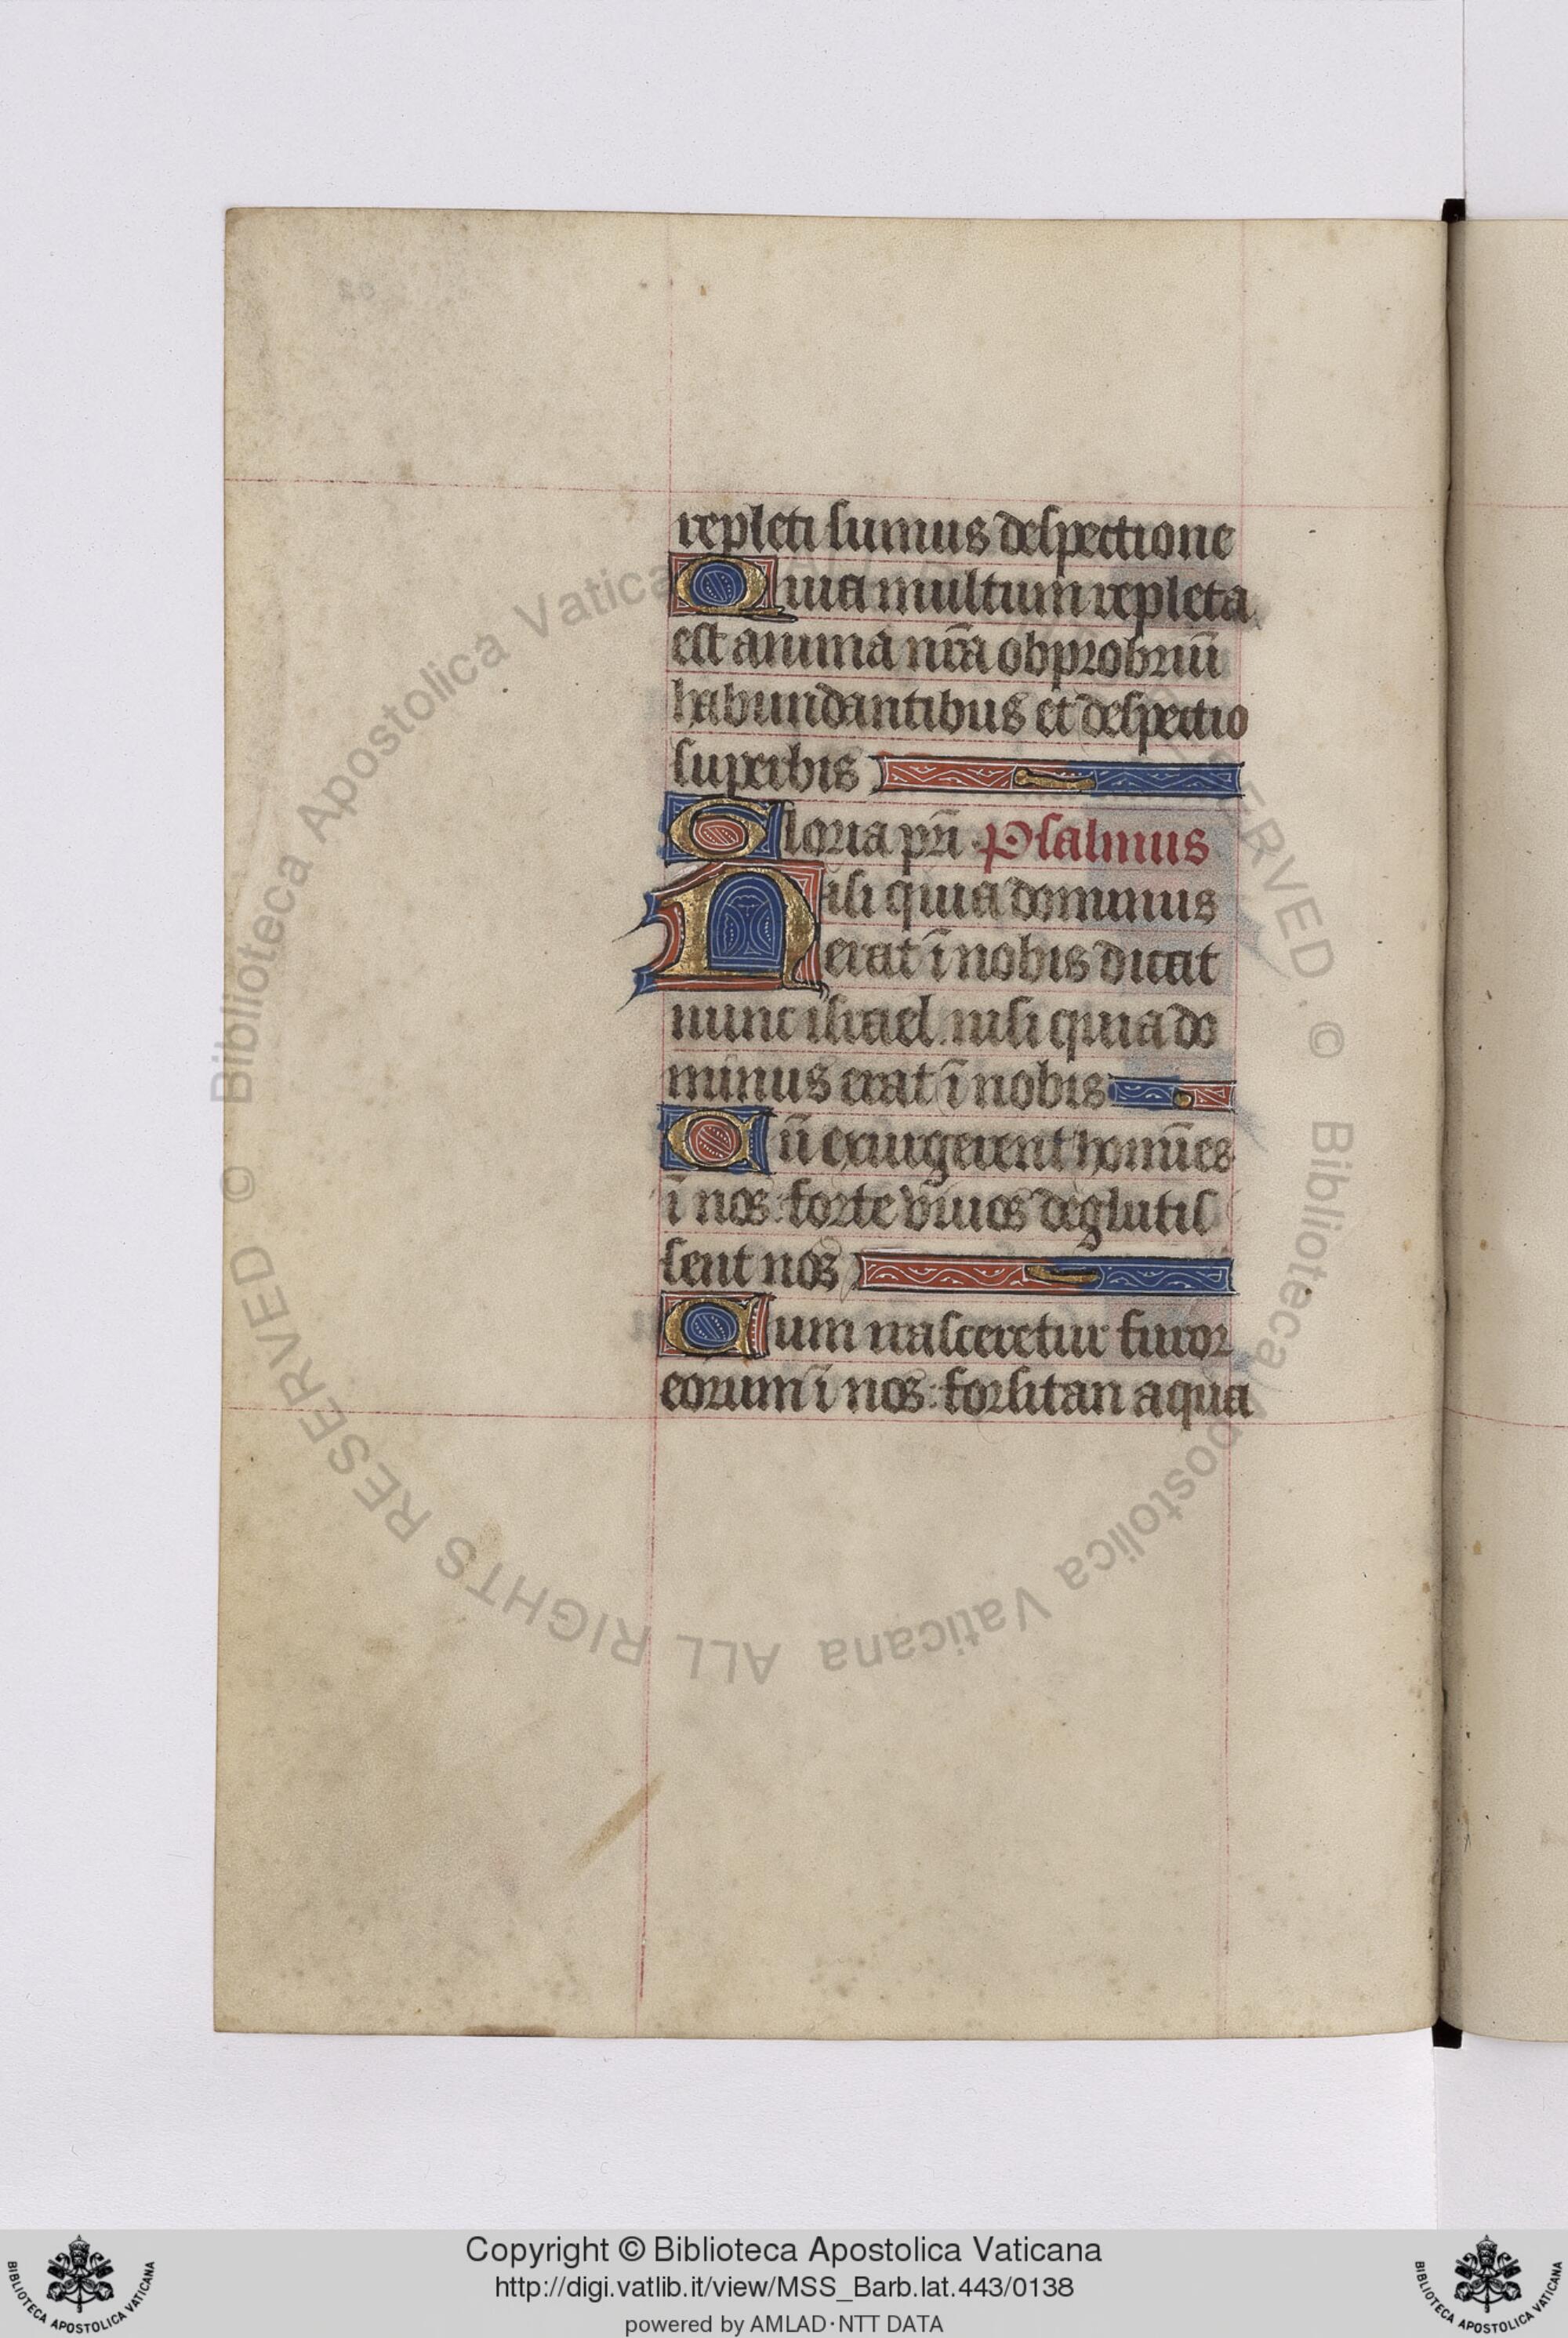 repleti sumus despectione
Quia multum repleta
est anima nr̄a obprobriū
habundantibus et despectio
superbis
Gloria pr̄i Psalmus
Nisi quia dominus
erat ī nobis dicat
nunc israel. nisi quia do
minus erat ī nobis
Cū exurgerent homīes
ī nos: forte viuos deglutis
sent nos
Cum nasceretur furor
eorum ī nos: forsitan aqua
© Biblioteca Apostolica Vaticana ALL RIGHTS RESERVED
Copyright © Biblioteca Apostolica Vaticana
http://digi.vatlib.it/view/MSS_Barb.lat.443/0138
powered by AMLAD·NTT DATA
BIBLIOTECA APOSTOLICA VATICANA
BIBLIOTECA APOSTOLICA VATICANA